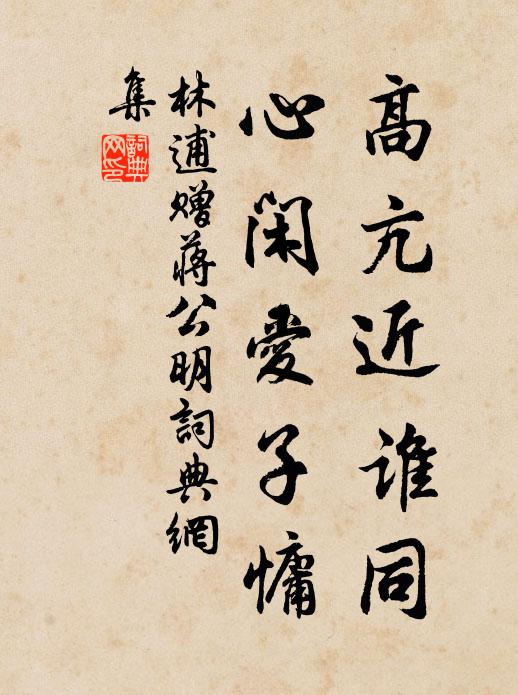 高亢近谁同
心闲爱子慵
林逋赠蒋公明詞典網
集
詞典网印